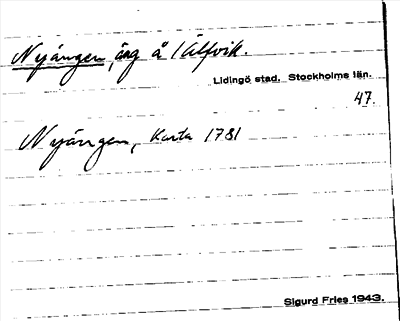 Nyängen, äng å Kälfvik.
Lidingö stad. Stockholms län.
47.
Nyängen, Karta 1781
Sigurd Fries 1943.